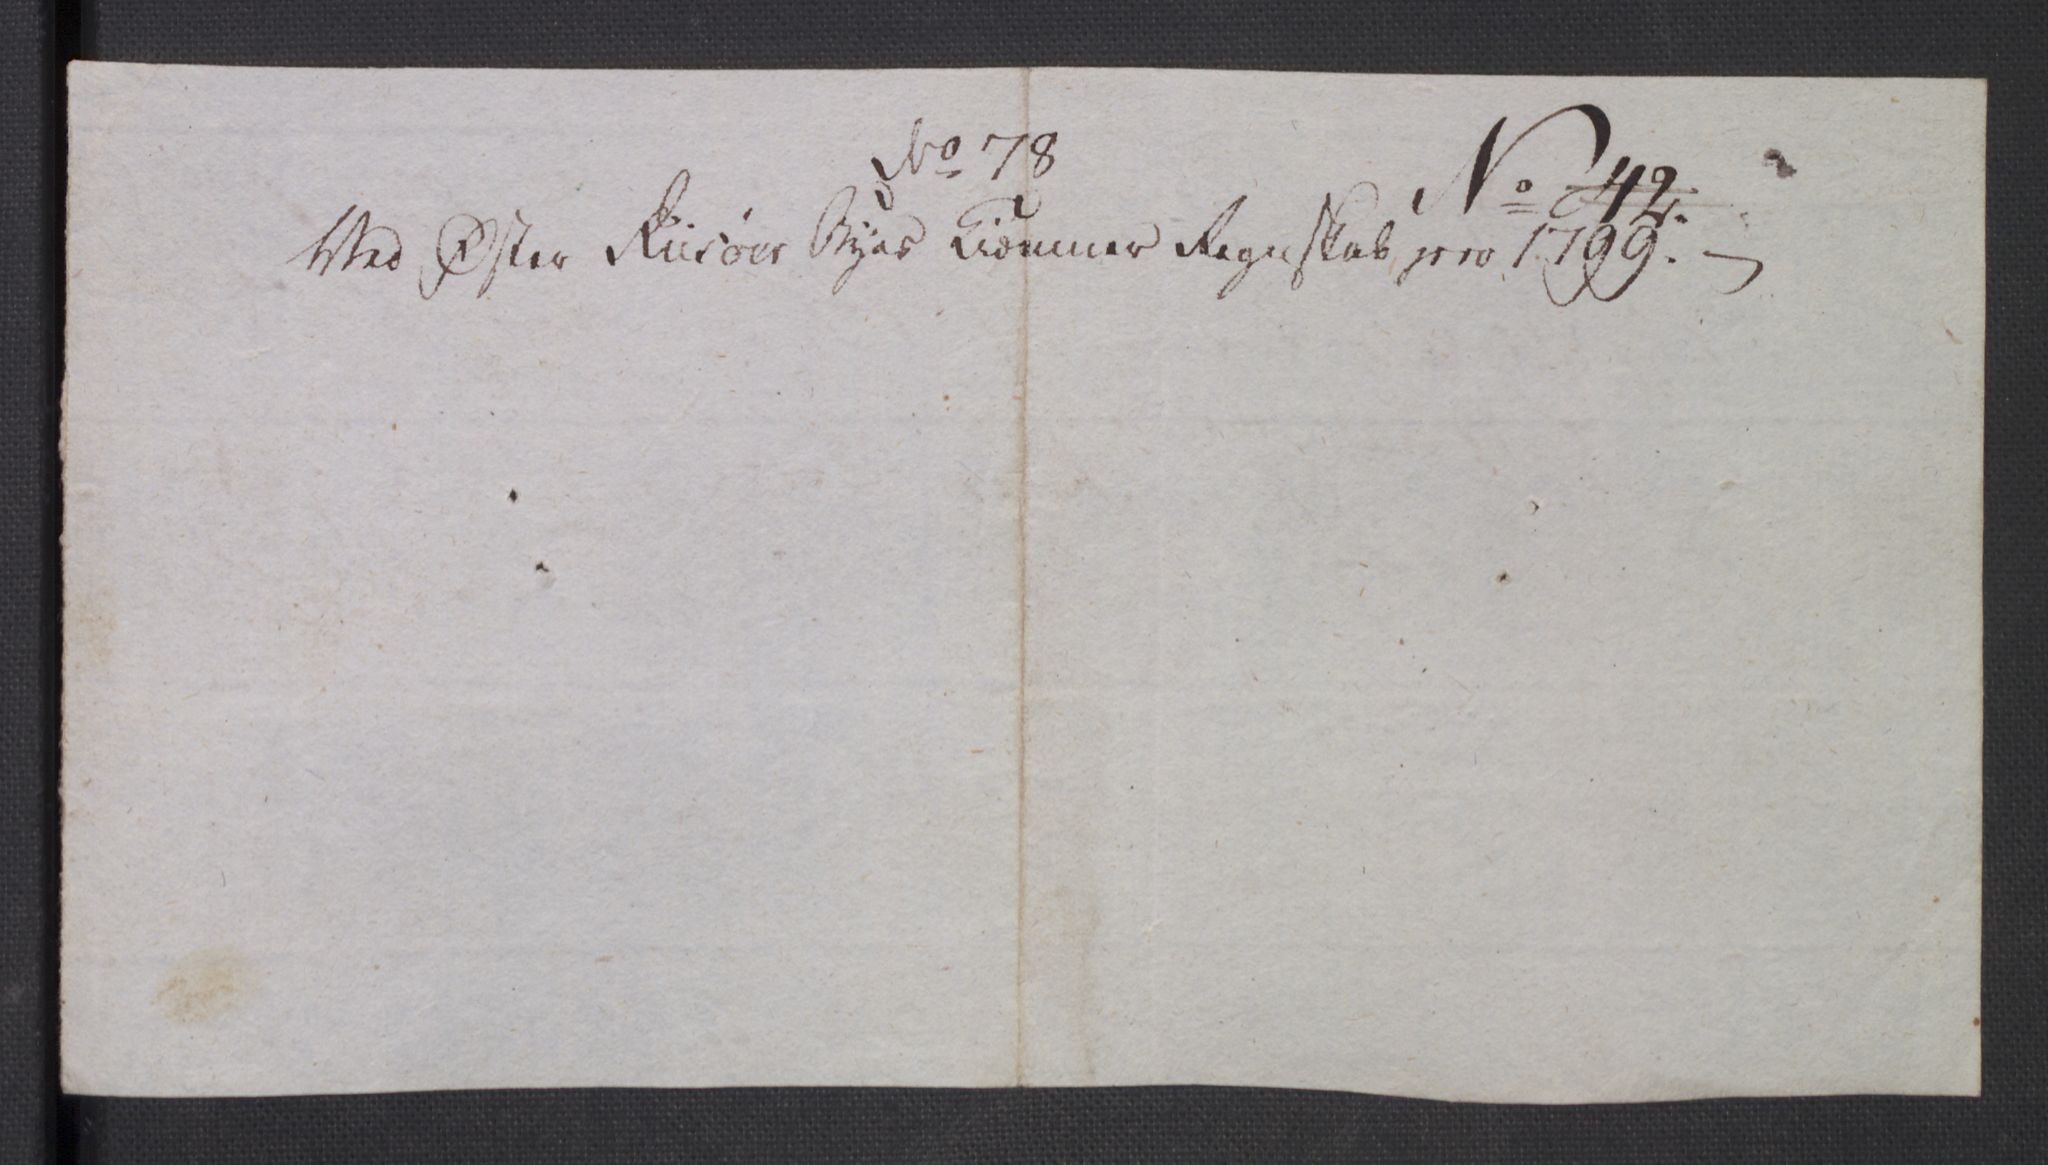 No 78
No 42.
Ved Øster Riisøers Byes Kiæmner Regnskab pro 1799.